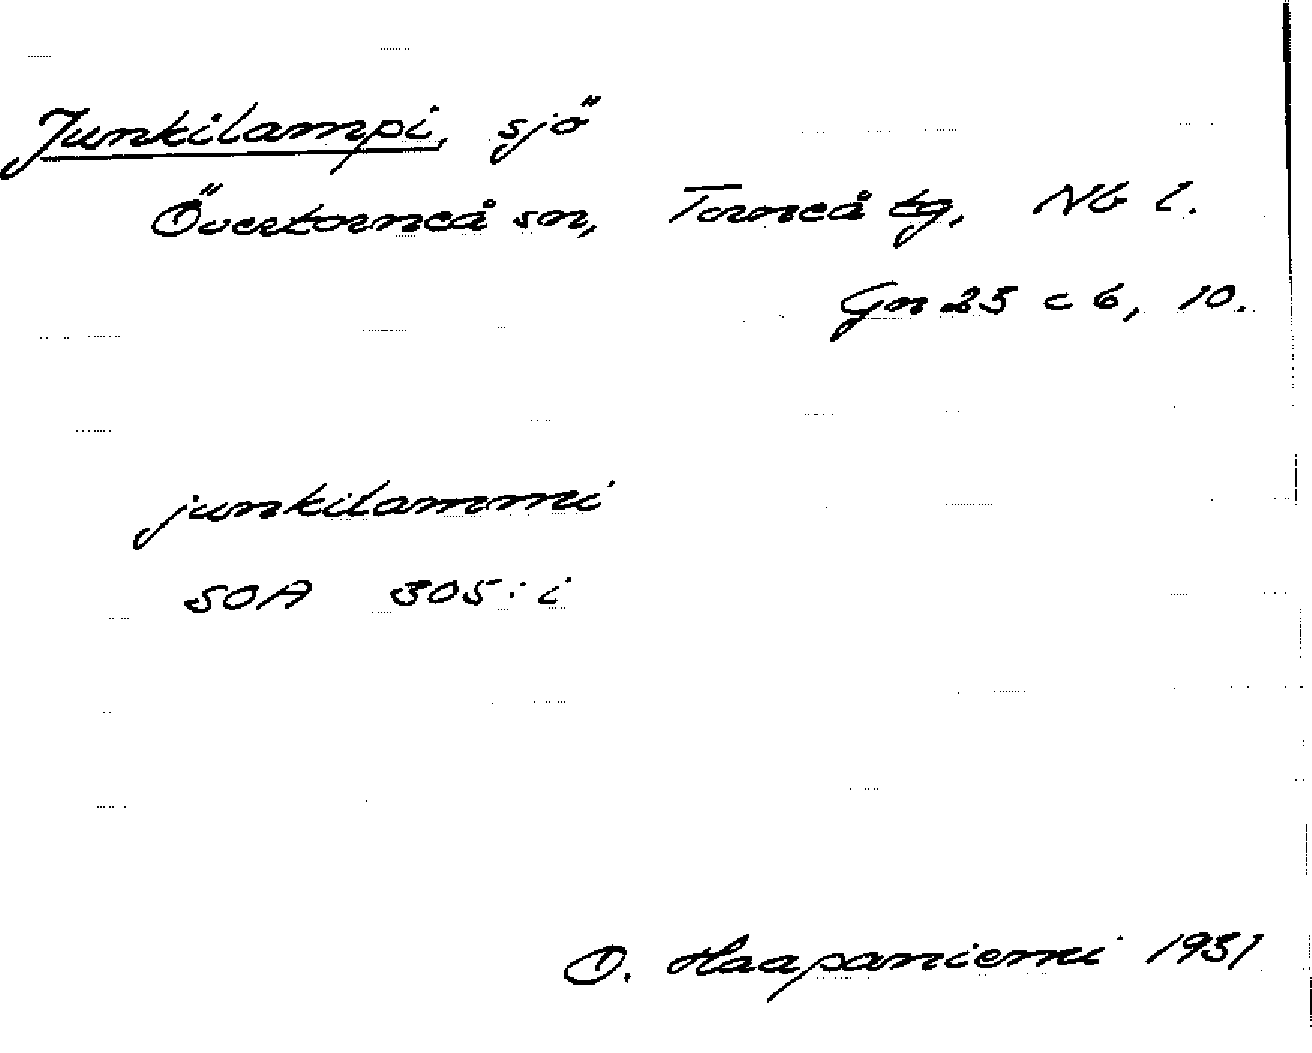 Junkilampi, sjö
Övertorneå sn, Torneå tg, Nb l.
Gn 25 c 6, 10.
junkilammi
SOA 305: i
O. Haapaniemi 1931